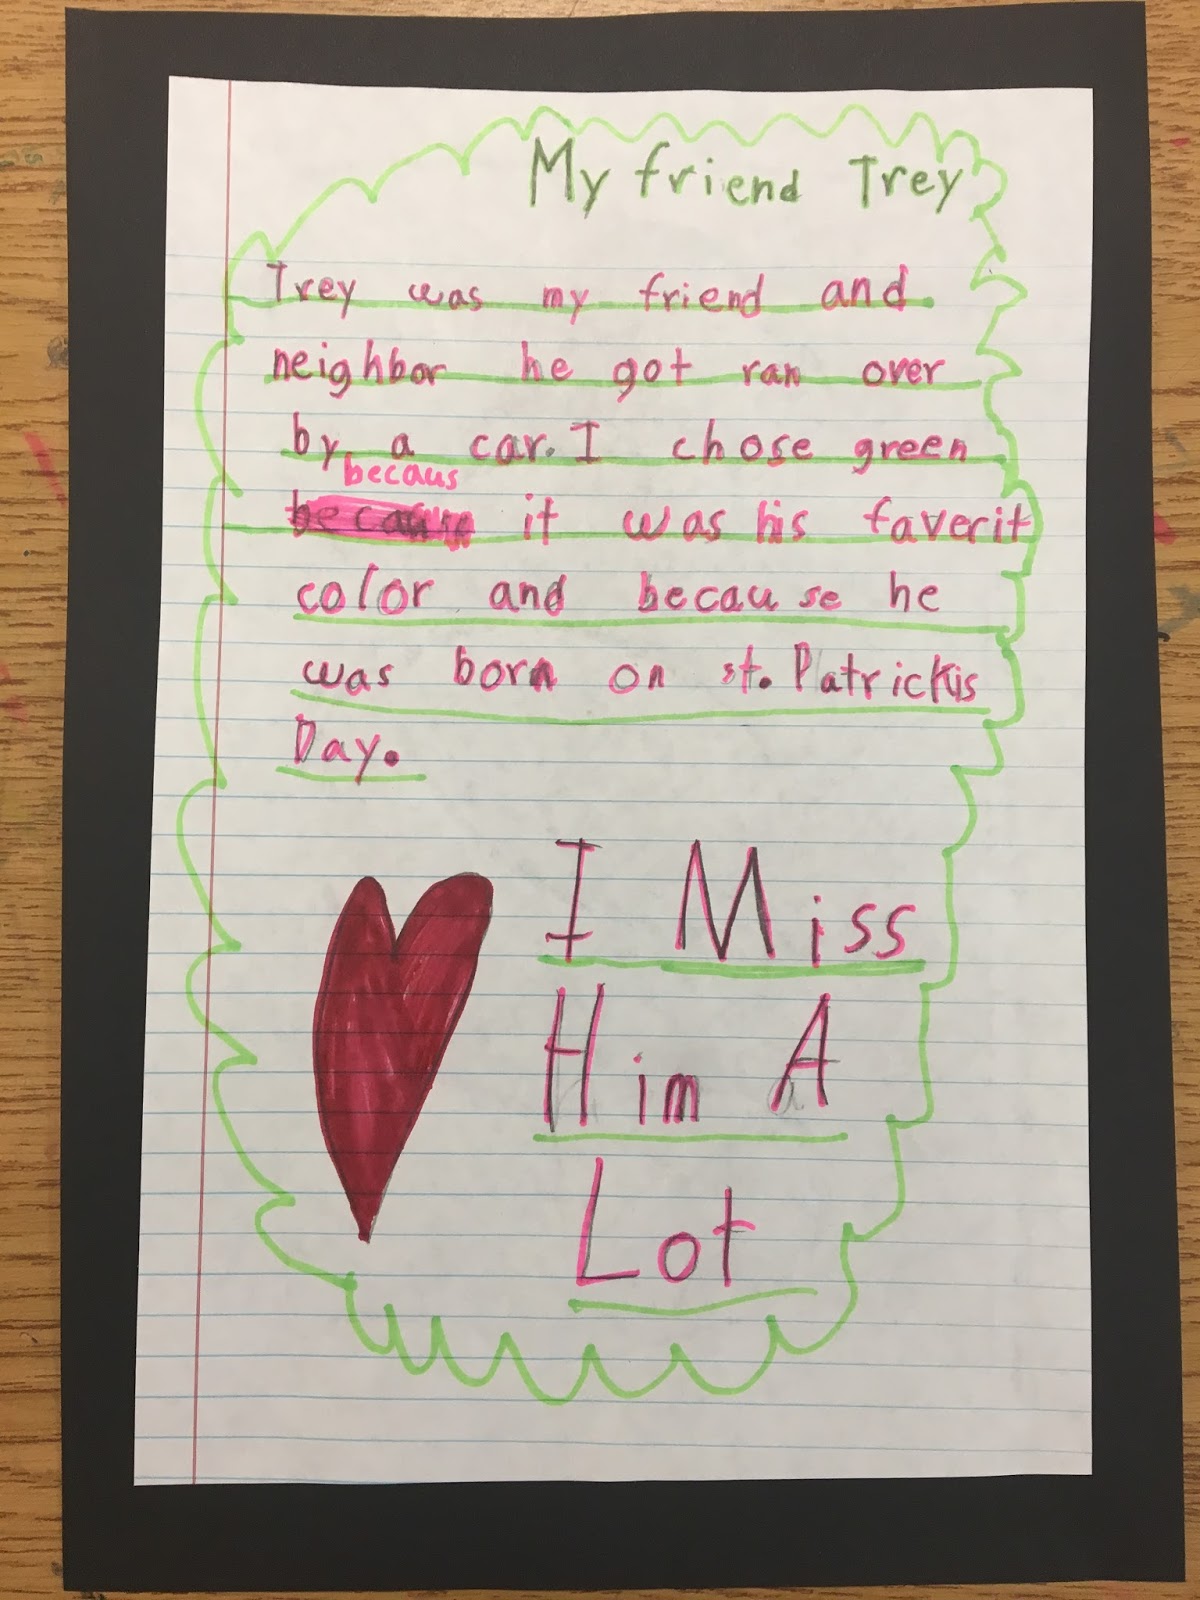 My friend Trey
Trey was my friend and
neighbor he got ran over
by a car. I chose green
becaus
because it was his faverit
color and because he
was born on st. Patrick's
Day.
I Miss
Him A
Lot